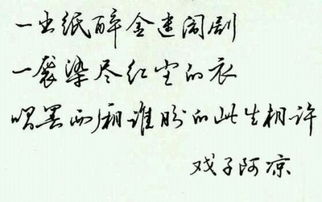 一出纸醉金迷闹剧
一袭染尽红尘的衣
唱罢西厢谁盼的此生相许
戏子阿凉